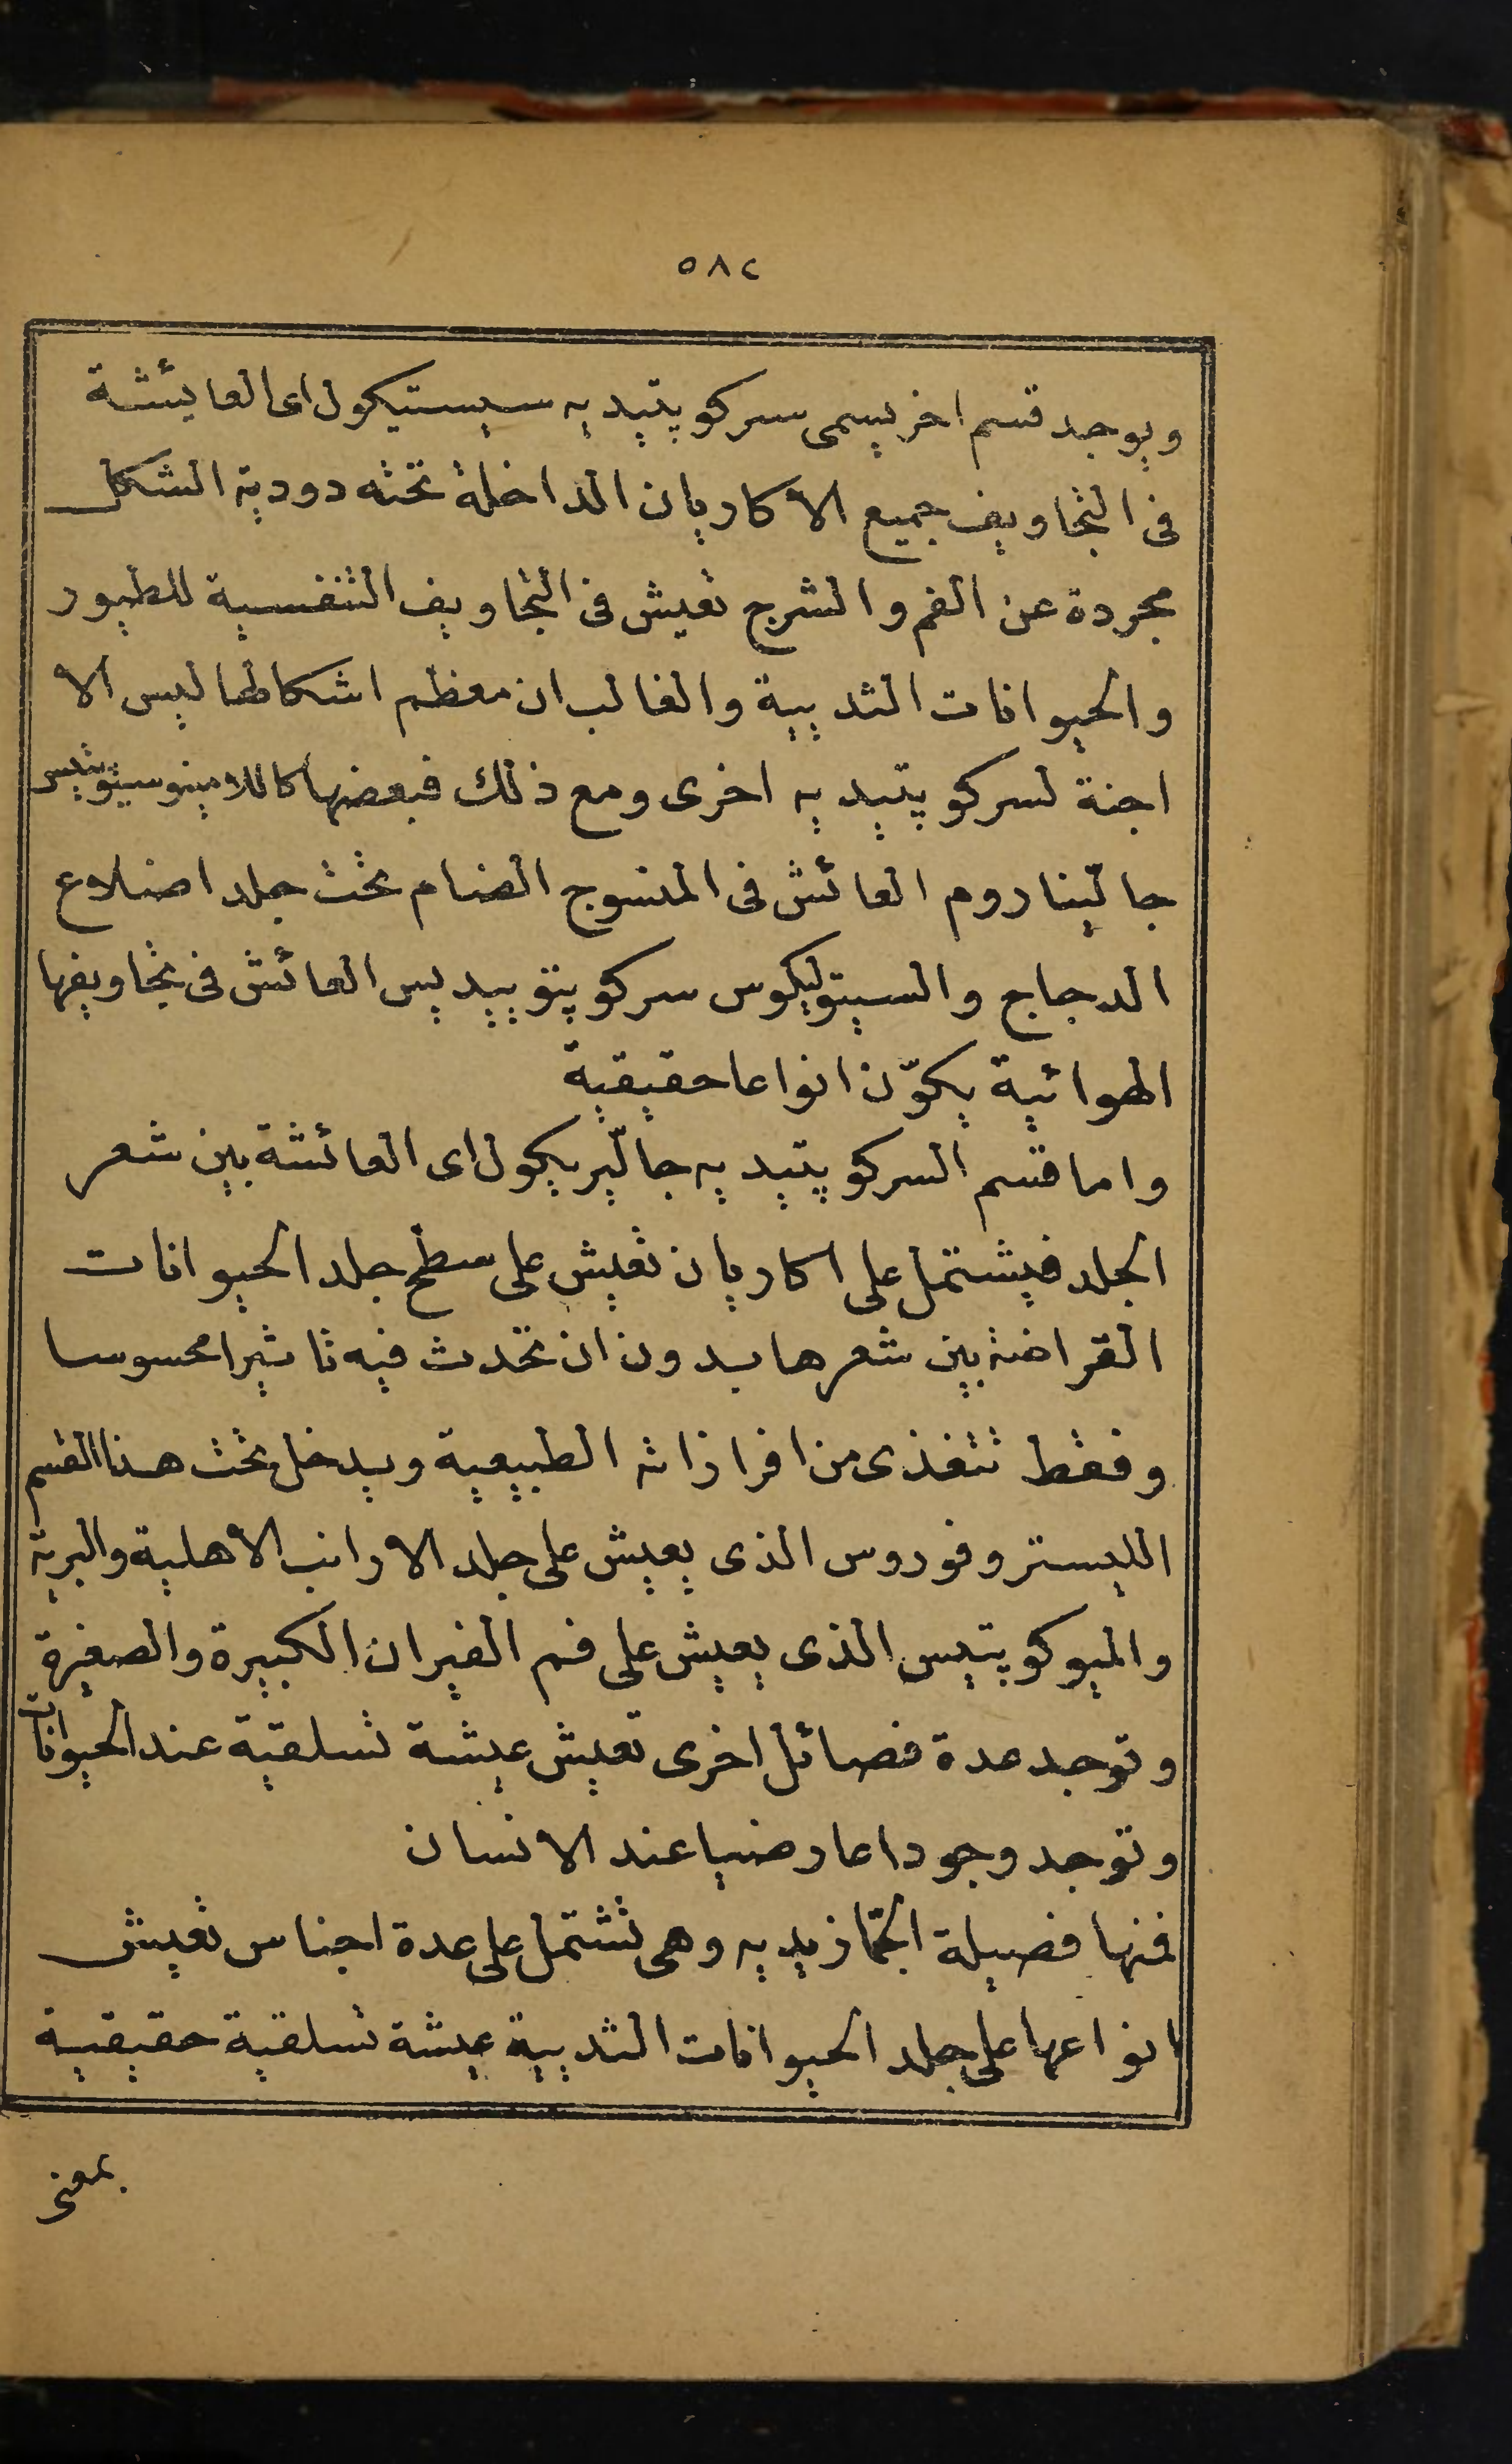 ٥٨٢
ويوجد قسم اخر يسمى سركوپتيديه سيستيكول اى العايئشة
فى التجاويف جميع الاكاريان الداخلة تحته دودية الشكل
مجردة عن الفم والشرج تعيش فى التجاويف التنفسية للطيور
والحيوانات الثديية والغالب ان معظم اشكالها ليس الا
اجنة لسركوپتيديه اخرى ومع ذلك فبعضها كاللامينوسيتوتيس
جالينا روم العائش فى المنسوج الضام تحت جلد اضلاع
الدجاج والسيتوليكوس سركوپتوييديس العائش فى تجاويفها
الهوائية يكوّن انواعا حقيقية
واما قسم السركوپتيديه جاليريكول اى العائشة بين شعر
الجلد فيشتمل على اكاريان تعيش على سطح جلد الحيوانات
القراضة بين شعرها بدون ان تحدث فيه تاثيرا محسوسا
وفقط تتغذى من افرازاته الطبيعية ويدخل تحت هذا القسم
الليستروفوروس الذى يعيش على جلد الارانب الاهلية والبرية
والميوكوپتيس الذى يعيش على فم الفيران الكبيرة والصغيرة
وتوجد عدة فصائل اخرى تعيش عيشة تسلقية عند الحيوانات
وتوجد وجودا عارضيا عند الانسان
فمنها فصيلة الجمازيديه وهى تشتمل على عدة اجناس تعيش
انواعها على جلد الحيوانات الثديية عيشة تسلقية حقيقية
بمعنى